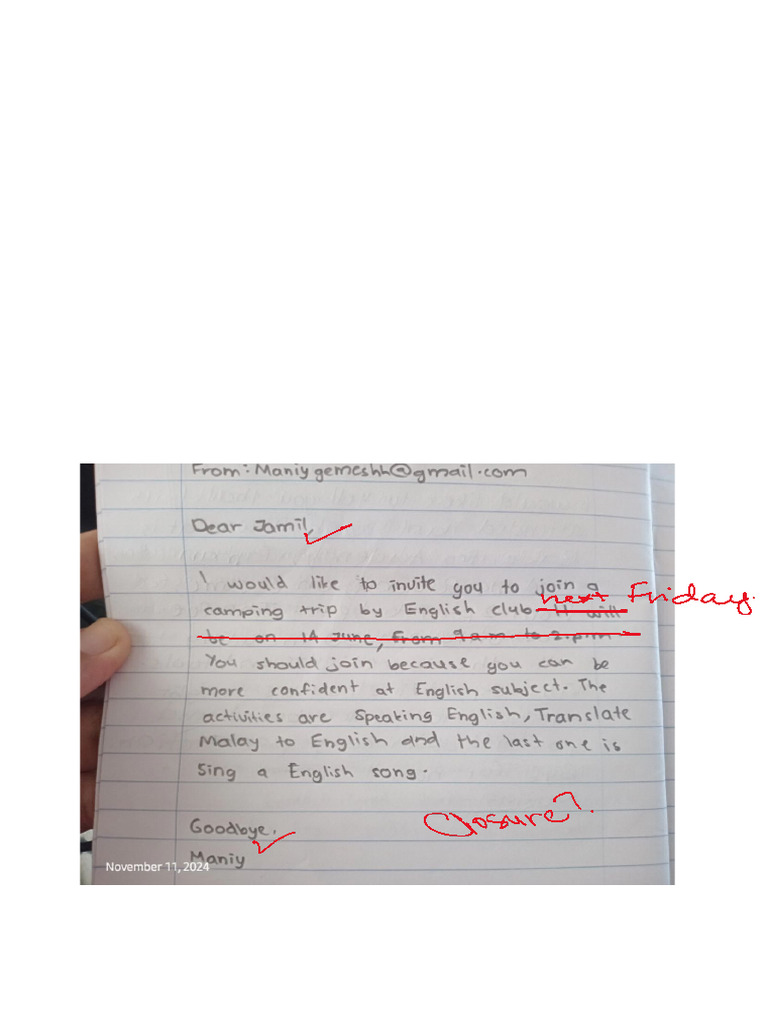 From: Maniygemeshh@gmail.com
Dear Jamil,
I would like to invite you to join a
camping trip by English club. It will next Friday.
be on 14 June, from 9am to 2.pm
You should join because you can be
more confident at English subject. The
activities are Speaking English, Translate
Malay to English and the last one is
Sing a English song.
Closure?
Goodbye,
Maniy
November 11, 2024